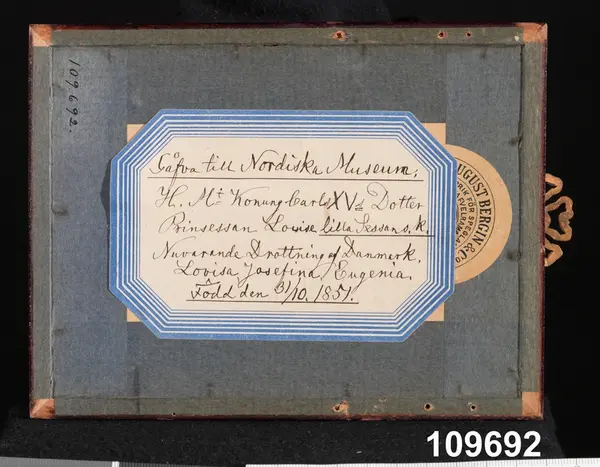 109692.
Gåfva till Nordiska Museum,
H. Mt Konung Carls XVs Dotter
Prinsessan Louise lilla Sessan s. k.
Nuvarande Drottning af Danmark.
Lovisa Josefina Eugenia.
Född den 31/10. 1851.
AUGUST BERGIN & Co
FÖR SPEGLAR
109692